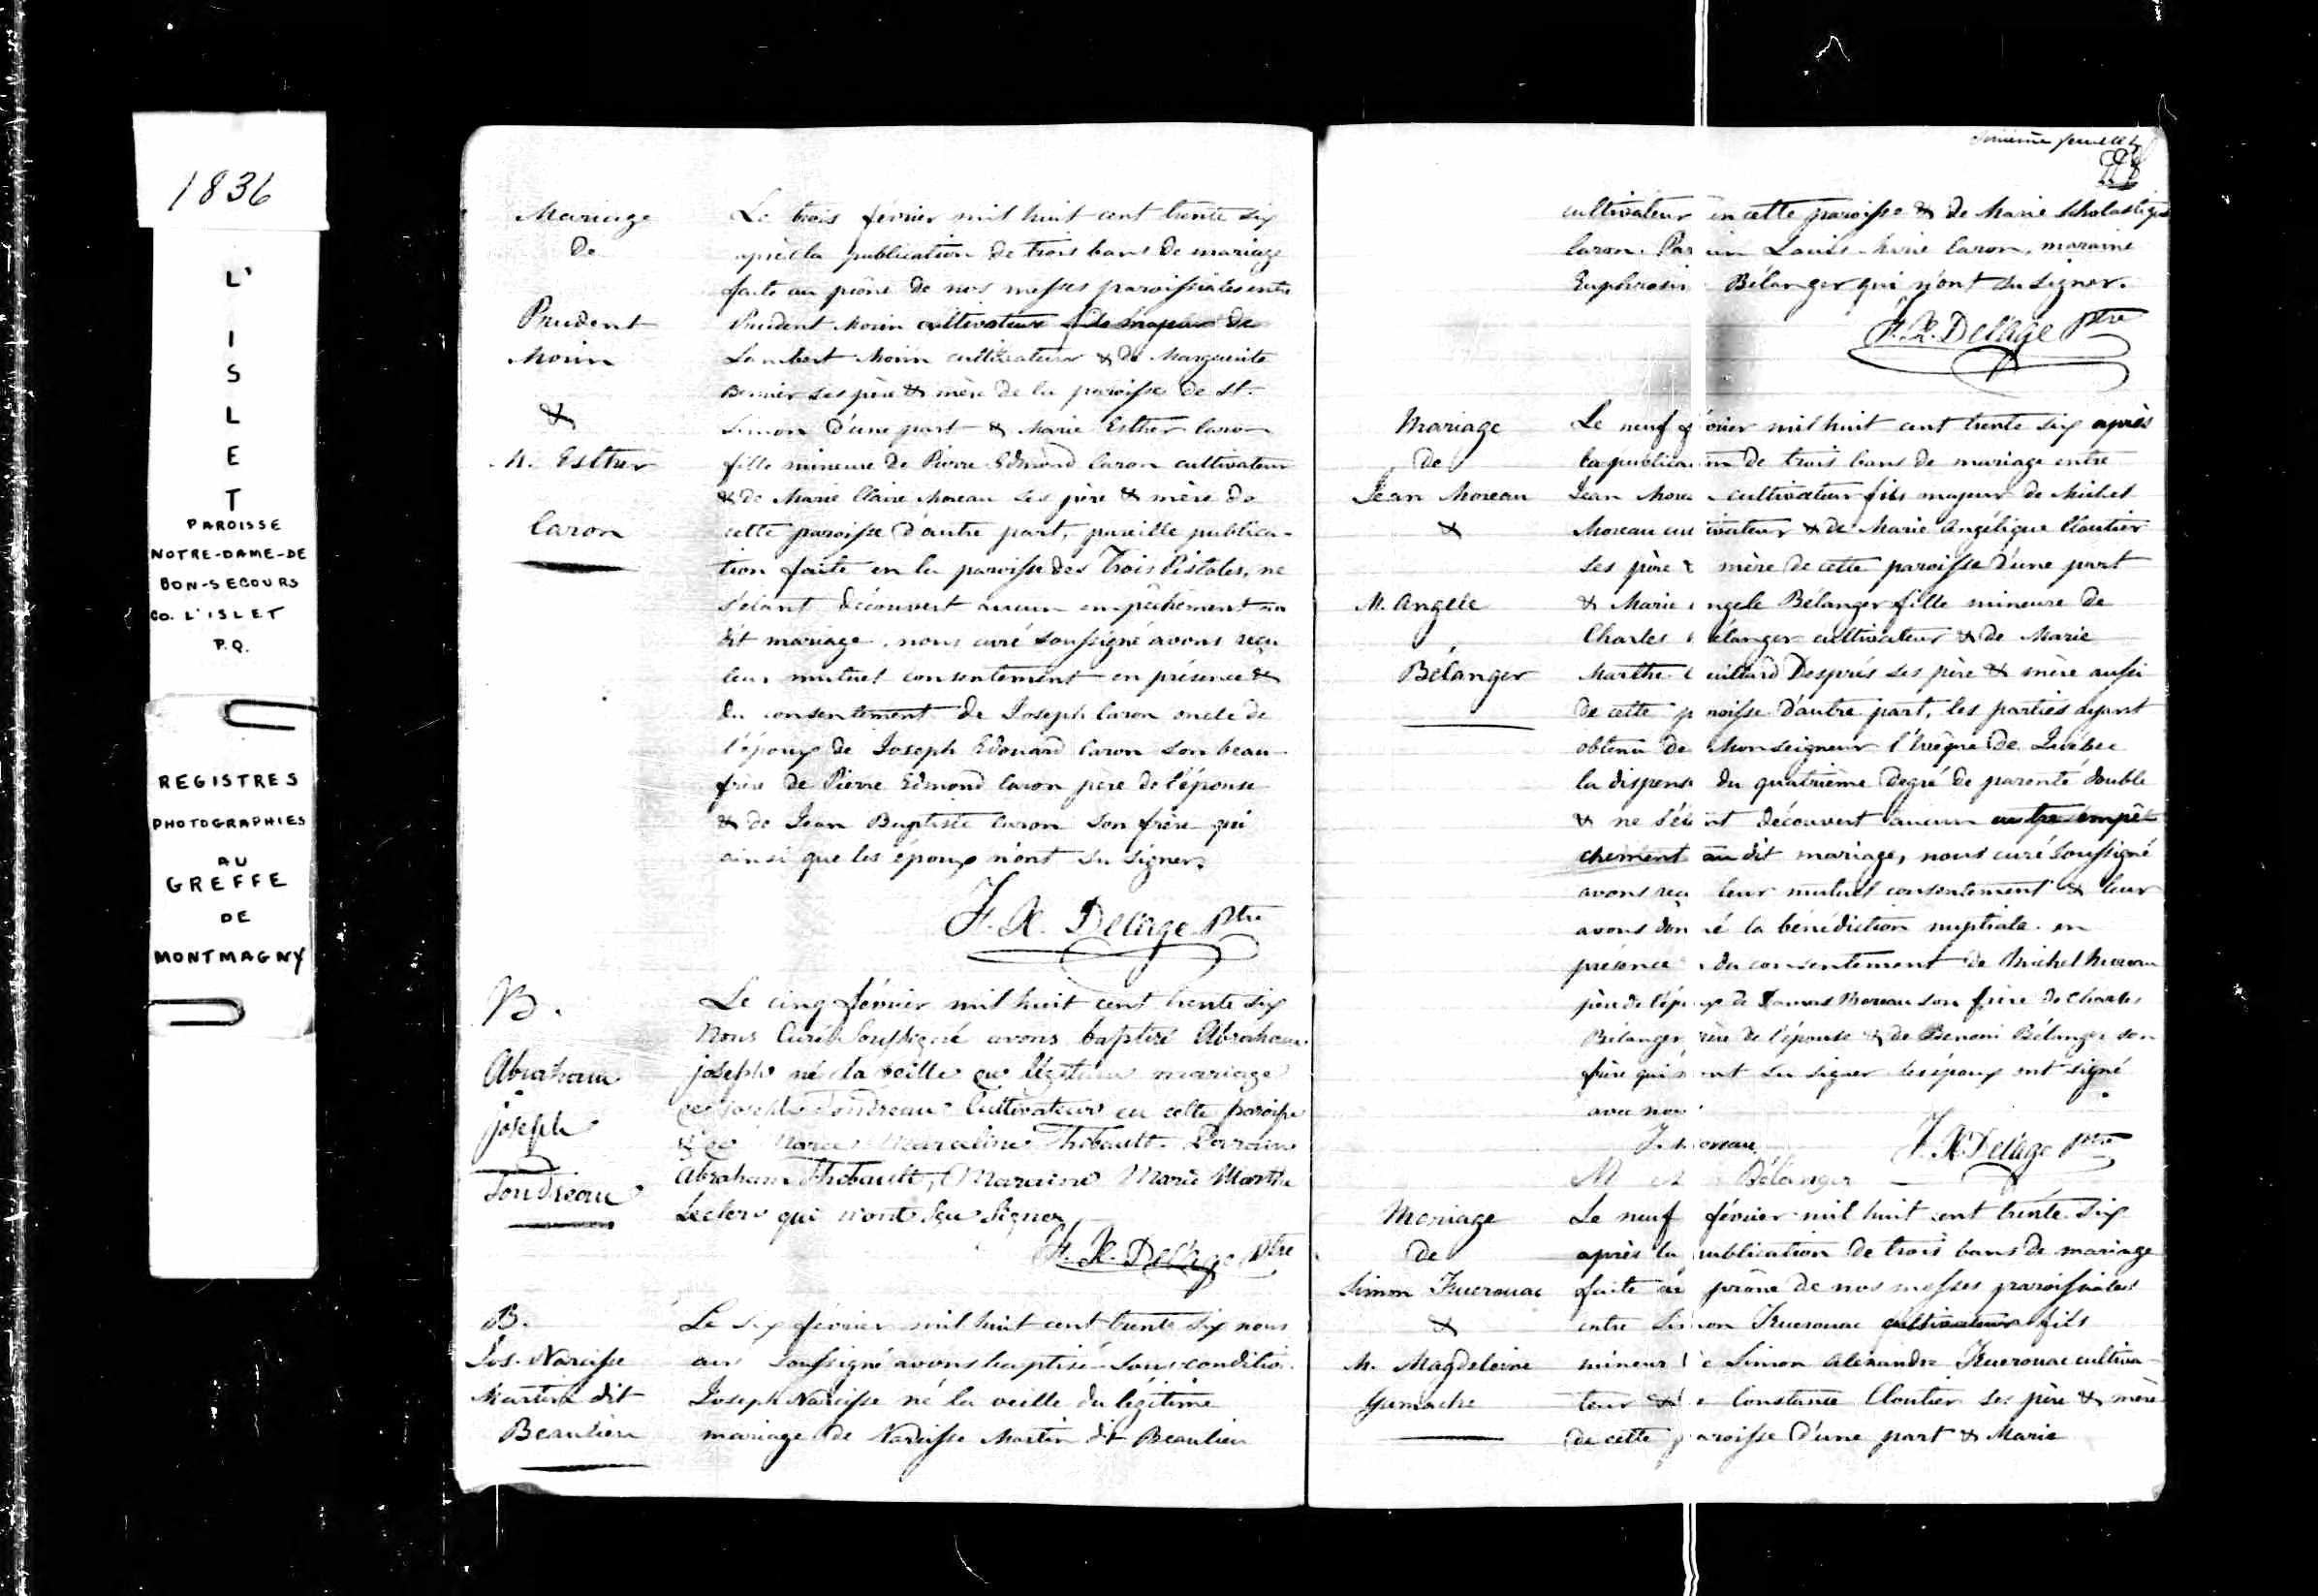 1836
L'
I
S
L
E
T
PAROISSE
NOTRE-DAME-DE
BON-SECOURS
CO. L'ISLET
P.Q.
REGISTRES
PHOTOGRAPHIES
AU
GREFFE
DE
MONTMAGNY
Mariage
De
Prudent
Morin
&
M. Esther
Caron
Le trois février mil huit cent trente six
après la publication de trois bans de mariage
faite au prône de nos messes paroissiales entre
Prudent Morin cultivateur fils majeur de
Lambert Morin cultivateur & de Marguerite
Bernier ses père & mère de la paroisse de St.
Simon d'une part & Marie Esther Caron
fille mineure de Pierre Edmond Caron cultivateur
& de Marie Claire Moreau ses père & mère de
cette paroisse d'autre part, pareille publica-
tion faite en la paroisse des Trois Pistoles, ne
s'étant découvert aucun empêchement au
dit mariage, nous curé soussigné avons reçu
leur mutuel consentement en présence &
du consentement de Joseph Caron oncle de
l'époux de Joseph Edouard Caron son beau-
frère de Pierre Edmond Caron père de l'épouse
& de Jean Baptiste Caron son frère qui
ainsi que les époux n'ont su signer.
F. X. Delâge Ptre
B.
Abraham
joseph
Tondreau
Le cinq février mil huit cent trente six
Nous Curé Soussigné avons baptisé Abraham
joseph né la veille en légitime mariage
de joseph Tondreau Cultivateur en cette paroisse
& de Marie Marceline Thibault. Parrain
Abraham Thibault, Maraine Marie Marthe
Leclerc qui n'ont Sçu Signer
F. X. Delâge Ptre
B.
Jos. Narcisse
Martin dit
Beaulieu
Le six février mil huit cent trente six nous
curé soussigné avons baptisé sous condition
Joseph Narcisse né la veille du légitime
mariage de Narcisse Martin dit Beaulieu
feuillet
cultivateur en cette paroisse & de Marie Scholastique
Caron. Par in Louis Marie Caron, maraine
Euphrosin Bélanger qui n'ont su signer.
F. X. Delâge Ptre
Mariage
de
Jean Moreau
&
M. Angèle
Bélanger
Le neuf f vrier mil huit cent trente six après
la publica n de trois bans de mariage entre
Jean More cultivateur fils majeur de Michel
Moreau cul tivateur & de Marie Angélique Cloutier
ses père & mère de cette paroisse d'une part
& Marie ngele Bélanger fille mineure de
Charles élanger cultivateur & de Marie
Marthe C uillard Després ses père & mère aussi
de cette p roisse d'autre part, les parties ayant
obtenu de Monseigneur l'Evêque de Québec
la dispense du quatrième degré de parenté double
& ne s'éta nt découvert aucun autre empê-
chement au dit mariage, nous curé soussigné
avons reçu leur mutuel consentement & leur
avons don né la bénédiction nuptiale en
présence du consentement de Michel Moreau
père de l'époux de Damas Moreau son frère de Charles
Bélanger ère de l'épouse & de Benoni Bélanger son
frère qui n' ont su signer les époux ont signé
avec nous
J. M oreau F. X. Delâge Ptre
M A Bélanger
Mariage
de
Simon Kuerouac
&
M. Magdeleine
Gamache
Le neuf février mil huit cent trente six
après la publication de trois bans de mariage
faite au prône de nos messes paroissiales
entre Simon Kuerouac cultivateur fils
mineur de Simon Alexandre Kuerouac cultiva-
teur & e Constance Cloutier ses père & mère
de cette paroisse d'une part & Marie